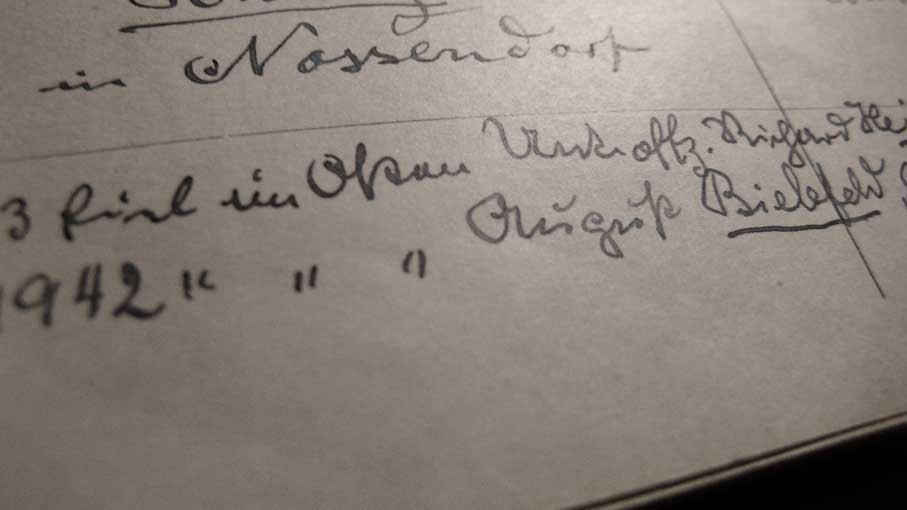 in Nossendorf
3 fiel im Osten Unteroffz. Richard Hei
1942 " " " August Bielefeld